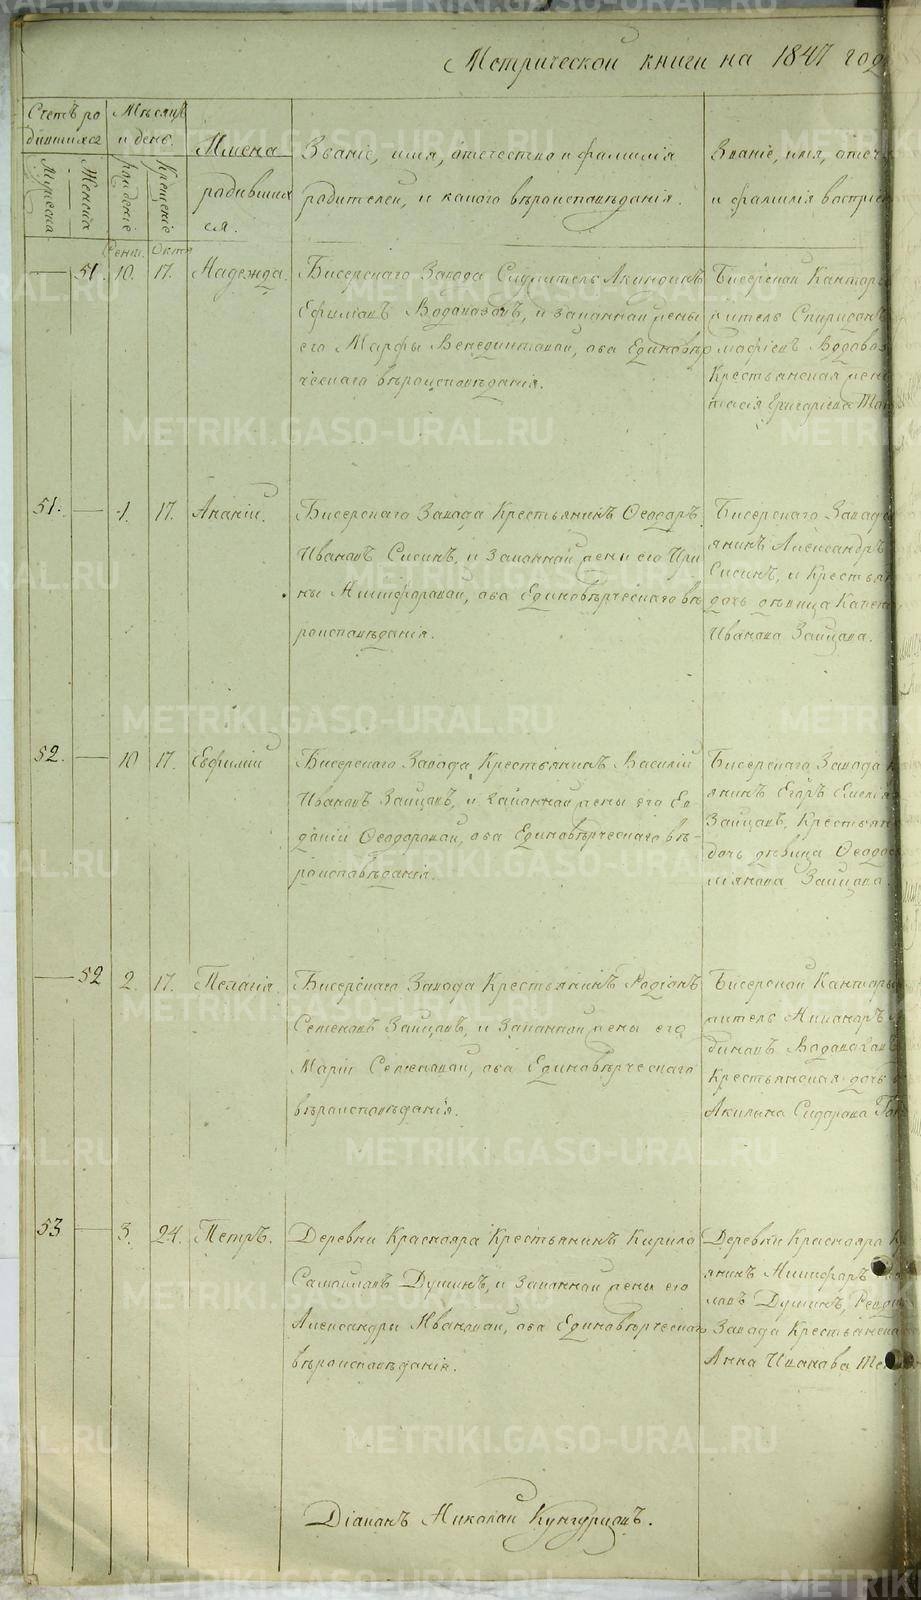 Метрической книги на 1847 год
Счетъ ро
дившихся
Мѣсяцъ
и день.
Мужеска
Женска
Рожденіе
Крещеніе
Имена
родивших
ся.
Званіе, имя, отечество и фамилія
родителей, и какого вѣроисповѣданія.
Званіе, имя, отеч
и фамилія воспріе
Сент. Октя
51. 10. 17. Надежда.
Бисерскаго Завода Служитель Акиндинъ
Ефимовъ Водовозовъ, и законной жены
его Марфы Венедиктовой, оба Единовѣр
ческаго вѣроисповѣданія.
Бисерской Контор
житель Спиридонъ
Водовоз
Крестьянская жен
тасія Григорьева
51. 1. 17. Ананій.
Бисерскаго Завода Крестьянинъ Ѳеодоръ
Ивановъ Сисинъ, и Законной жены его Ири
ны Никифоровой, оба Единовѣрческаго вѣ
роисповѣданія.
Бисерскаго Завода
янинъ Александръ
Сисинъ, и Крестья
дочь дѣвица Ксен
Иванова Зайцова.
52. 10 17. Евфимій
Бисерскаго Завода Крестьянинъ Василій
Ивановъ Зайцовъ, и законной жены его Ев
докіи Ѳеодоровой, оба Единовѣрческаго вѣ-
роисповѣданія.
Бисерскаго Завода к
янинъ Егоръ Емелія
Зайцовъ, Крестьян
дочь дѣвица Ѳеодос
ліянова Зайцова.
52 2. 17. Пелагія.
Бисерскаго Завода Крестьянинъ Родіонъ
Семеновъ Зайцовъ, и Законной жены его
Маріи Семеновой, оба Единовѣрческаго
вѣроисповѣданія.
Бисерской Конторы
житель Никаноръ
диновъ Водовозовъ
Крестьянская дочь
Акилина Сидорова
53 3. 24. Петръ.
Деревни Краснояра Крестьянинъ Кирило
Самойловъ Душинъ, и Законной жены его
Александры Ивановой, оба Единовѣрческаго
вѣроисповѣданія.
Деревни Краснояра К
янинъ Никифоръ
ловъ Душинъ, Ревди
Завода Крестьянска
Анна Иванова
Діаконъ Николай Кунгурцовъ.
METRIKI.GASO-URAL.RU